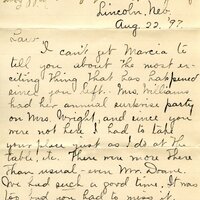 Lincoln, Neb.
Aug. 22. '97.
Law:
I can't get Marcia to
tell you about the most ex-
citing thing that has happened
since you left. Mrs. Williams
had her annual surprise party
on Mrs. Wright, and since you
were not here I had to take
your place just as I do at the
table, etc. There were more there
than usual, even Mrs. Doane.
We had such a good time. It was
too bad you had to miss it.